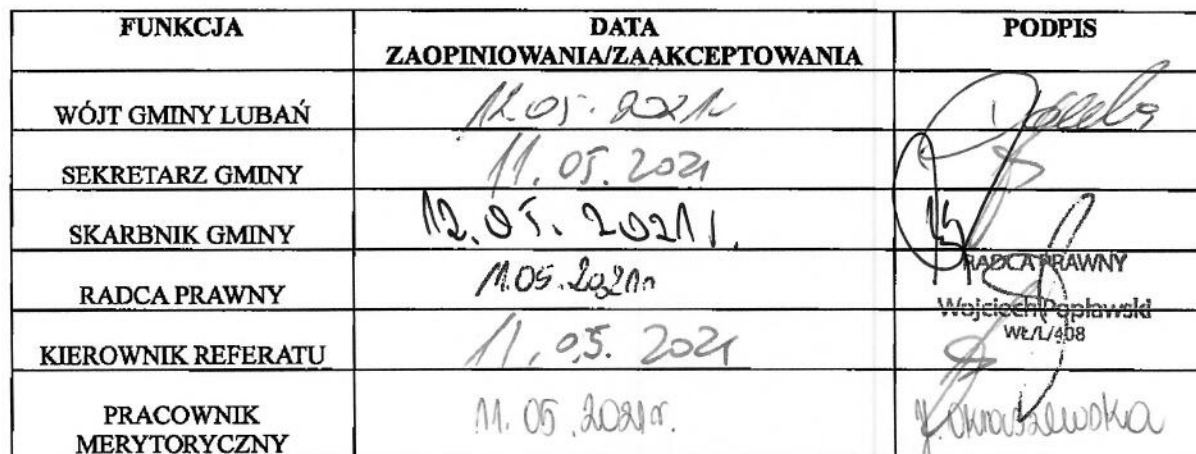 FUNKCJA
DATA
ZAOPINIOWANIA/ZAAKCEPTOWANIA
PODPIS
WÓJT GMINY LUBAŃ
12.05.2021r
SEKRETARZ GMINY
11.05.2021
SKARBNIK GMINY
12.05.2021r.
RADCA PRAWNY
11.05.2021r
RADCA PRAWNY
Wojciech Popławski
WŁ/L/408
KIEROWNIK REFERATU
11.05.2021
PRACOWNIK
MERYTORYCZNY
11.05.2021r.